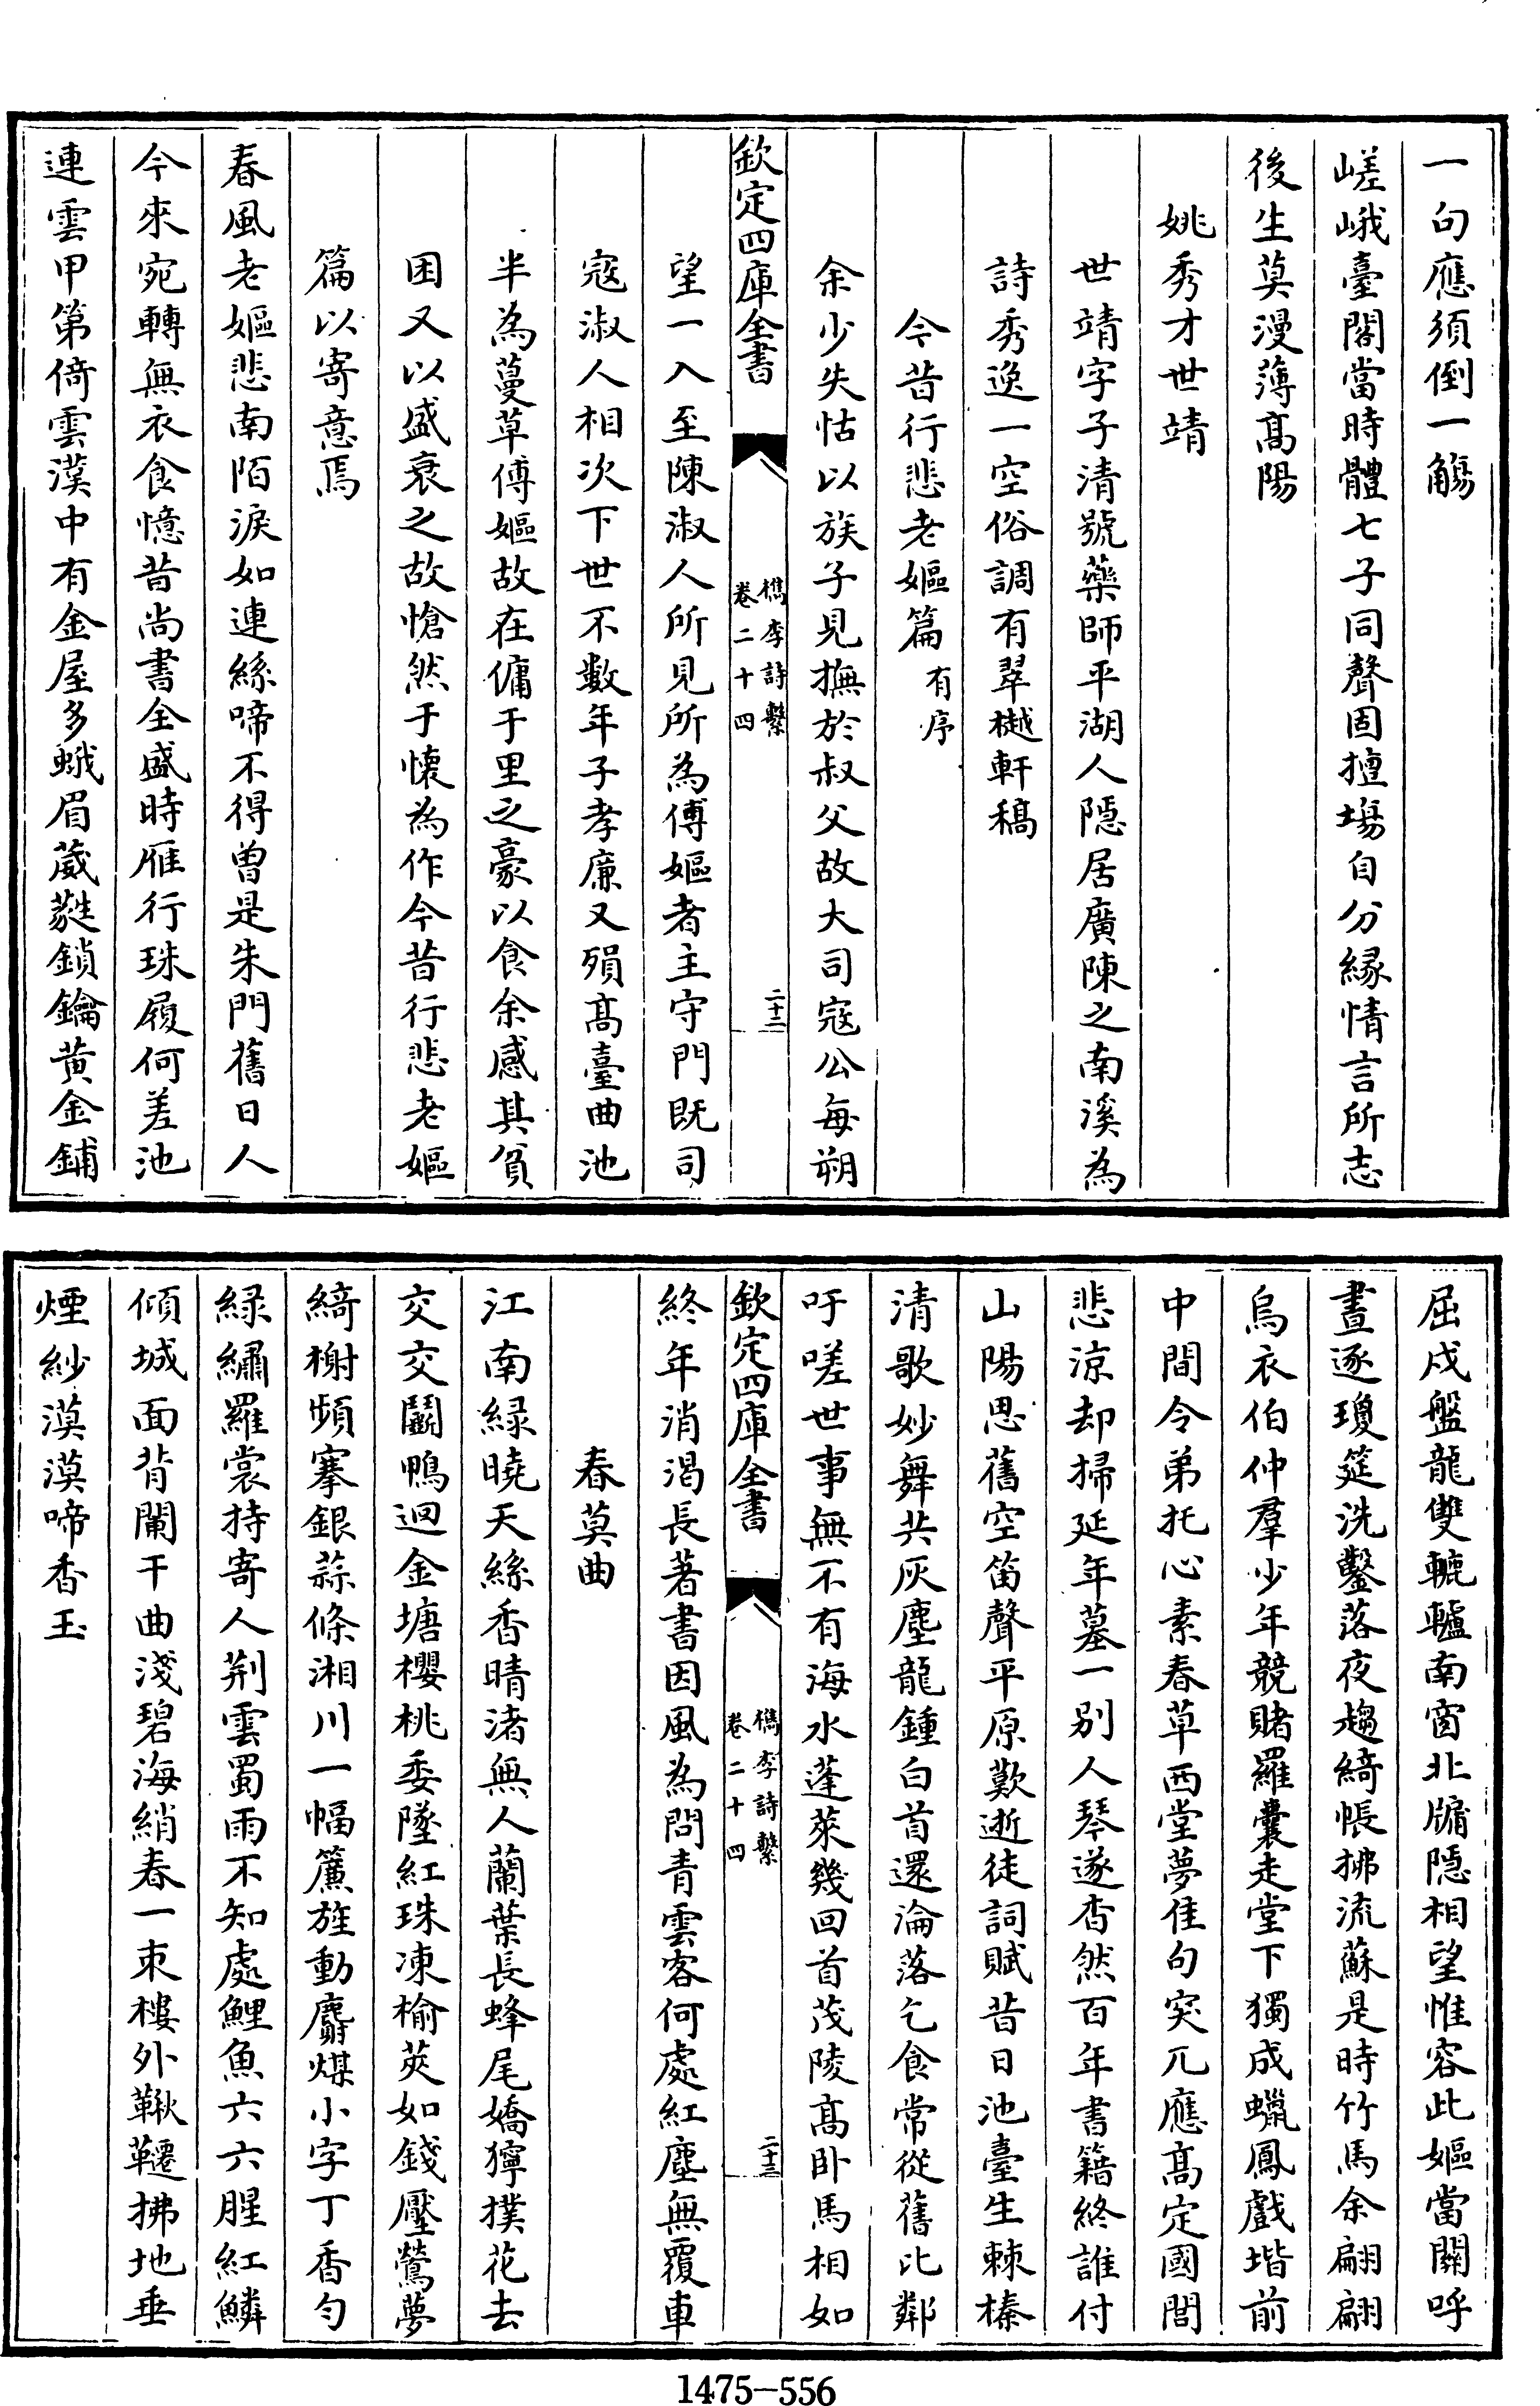 一句應須倒一觴
嵯峨臺閣當時體七子同聲固擅塲自分緣情言所志
後生莫漫薄髙陽
姚秀才世靖
世靖字子清號藥師平湖人隱居廣陳之南溪為
詩秀逸一空俗調有翠樾軒稿
今昔行悲老嫗篇有序
余少失怙以族子見撫於叔父故大司寇公每朔
欽定四庫全書
檇李詩繫
卷二十四
二十二
望一入至陳淑人所見所為傅嫗者主守門既司
寇淑人相次下世不數年子孝廉又殞髙臺曲池
半為蔓草傅嫗故在傭于里之豪以食余感其貧
困又以盛衰之故愴然于懷為作今昔行悲老嫗
篇以寄意焉
春風老嫗悲南陌淚如連絲啼不得曾是朱門舊日人
今來宛轉無衣食憶昔尚書全盛時雁行珠履何差池
連雲甲第倚雲漢中有金屋多蛾眉葳蕤鎖鑰黃金鋪
屈戍盤龍雙轆轤南窗北牖隱相望惟容此嫗當關呼
晝逐瓊筵洗鑿落夜趨綺帳拂流蘇是時竹馬余翩翩
烏衣伯仲羣少年競賭羅囊走堂下獨成蠟鳳戲堦前
中間令弟托心素春草西堂夢佳句突兀應髙定國閭
悲涼却掃延年墓一別人琴遂杳然百年書籍終誰付
山陽思舊空笛聲平原歎逝徒詞賦昔日池臺生棘榛
清歌妙舞共灰塵龍鍾白首還淪落乞食常從舊比鄰
吁嗟世事無不有海水蓬萊幾回首茂陵髙卧馬相如
欽定四庫全書
檇李詩繫
卷二十四
二十三
終年消渴長著書因風為問青雲客何處紅塵無覆車
春莫曲
江南緑曉天絲香晴渚無人蘭葉長蜂尾嬌獰撲花去
交交鬭鴨迴金塘櫻桃委墜紅珠凍榆莢如錢壓鶯夢
綺榭頻搴銀蒜條湘川一幅簾旌動麝煤小字丁香勻
緑繡羅裳持寄人荆雲蜀雨不知處鯉魚六六腥紅鱗
傾城面背闌干曲淺碧海綃春一朿樓外鞦韆拂地垂
煙紗漠漠啼香玉
1475-556